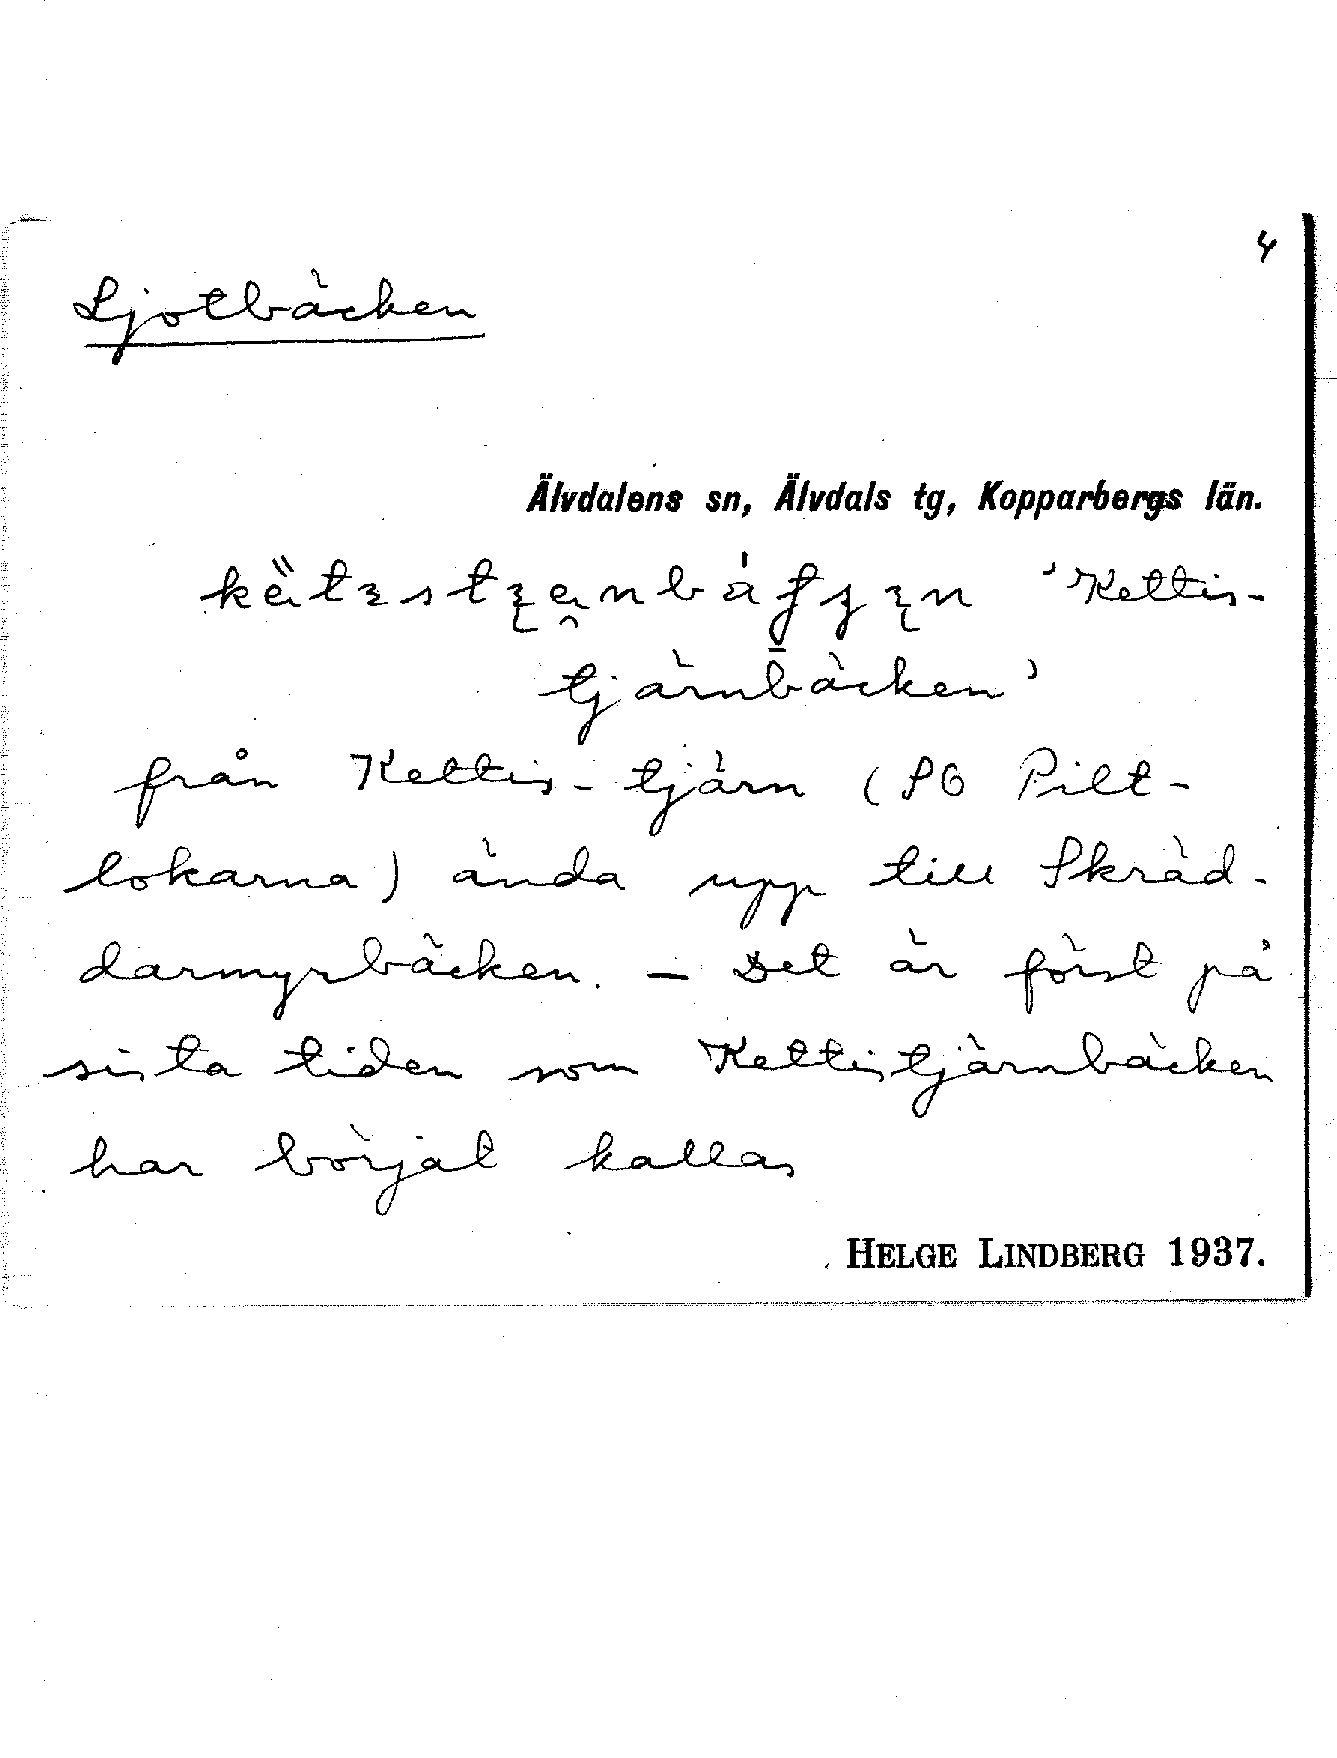 4
Ljotbäcken
Älvdalens sn, Älvdals tg, Kopparbergs län.
'Kettis-
tjärnbäcken'
från Kettis-tjärn (SO Pilt-
lokarna) ända upp till Skräd-
darmyrbäcken. — Det är först på
sista tiden som Kettistjärnbäcken
har börjat kallas
HELGE LINDBERG 1937.